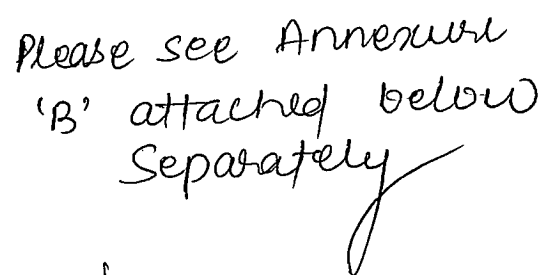 Please see Annexure
'B' attached below
Separately